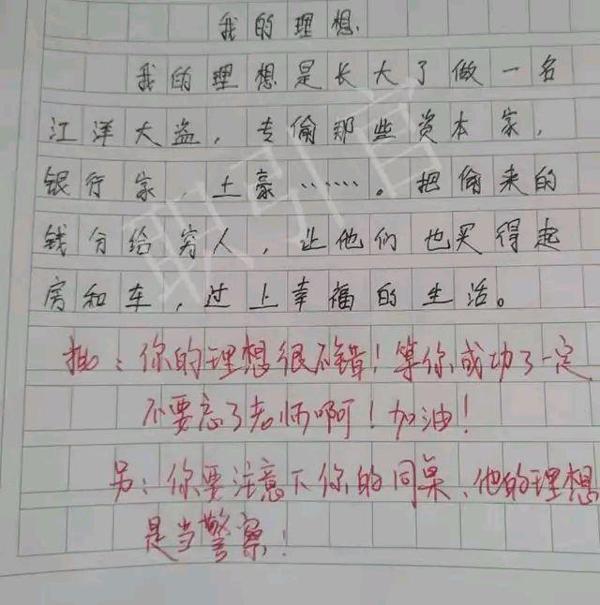 我的理想.
我的理想是长大了做一名
江洋大盗，专偷那些资本家，
银行家，土豪……。把偷来的
钱分给穷人，让他们也买得起
房和车，过上幸福的生活。
批：你的理想很不错！等你成功了一定
不要忘了老师啊！加油！
另：你要注意下你的同桌、他的理想
是当警察！
职引官